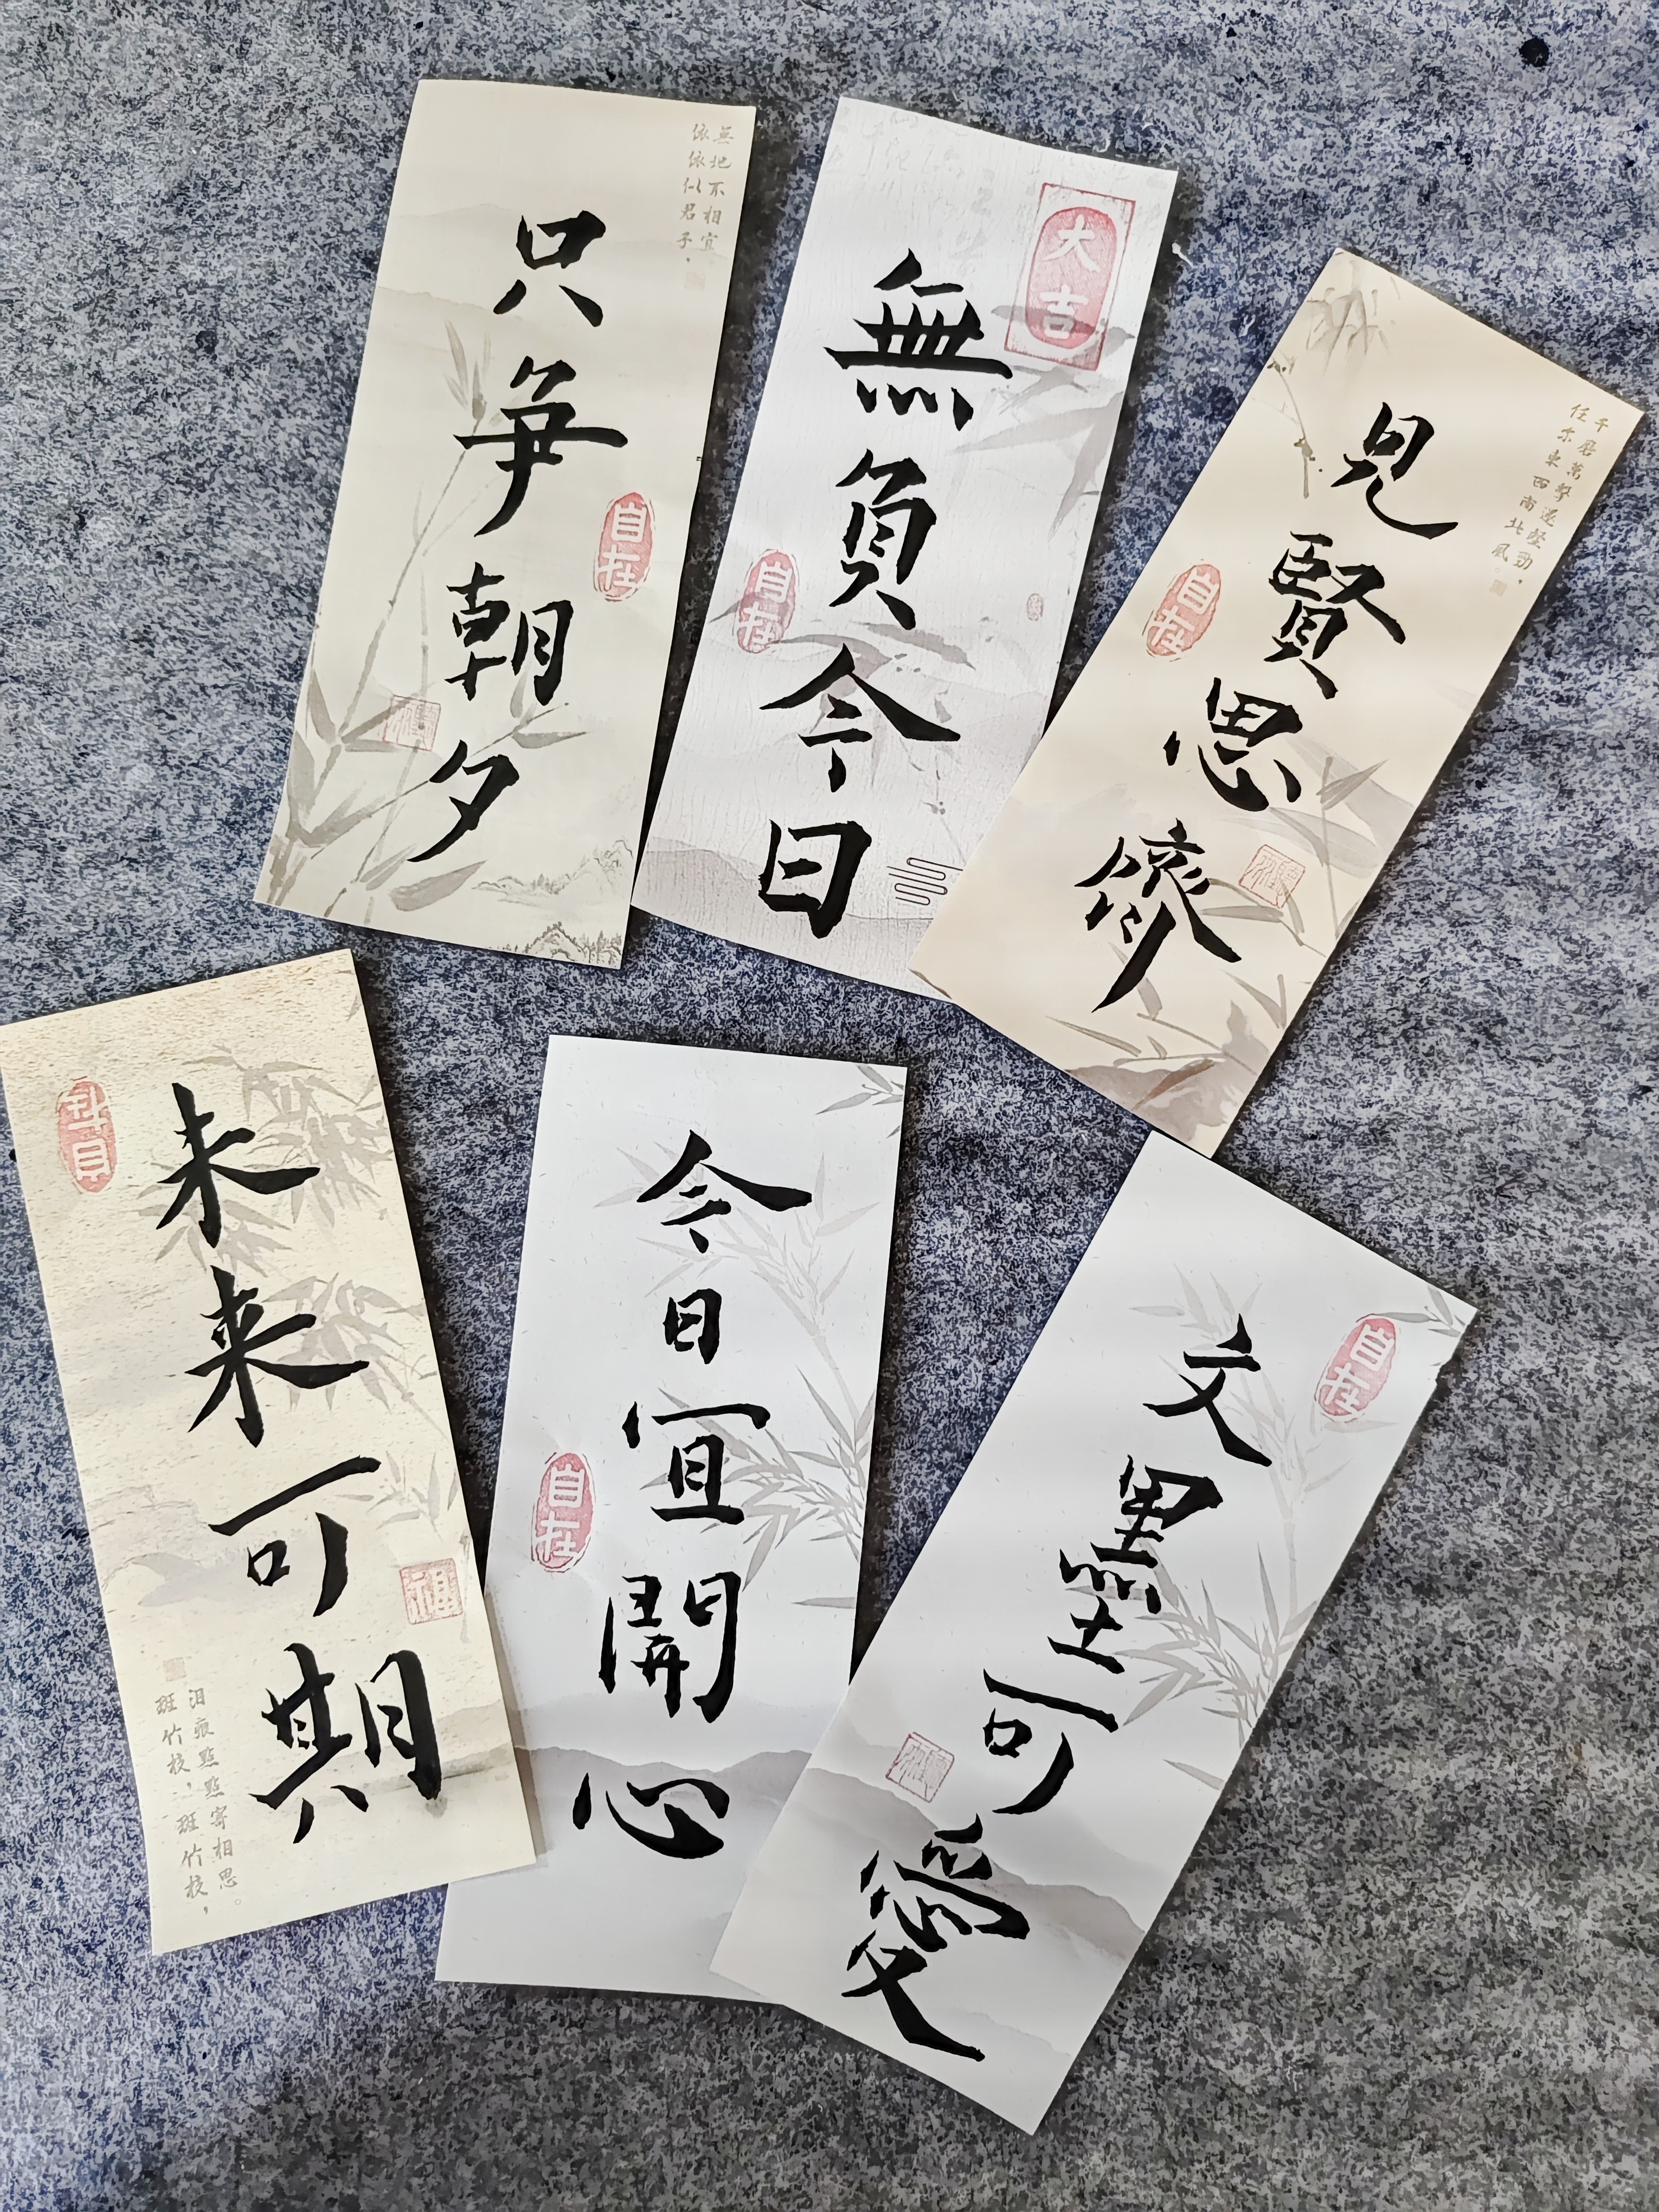 只爭朝夕
無地不相宜
依依似君子。
自在
無負今日
大吉
自在
見賢思齊
千磨萬擊還堅勁,
任尔東西南北風。
自在
未来可期
自在
福
斑竹枝,斑竹枝,
泪痕點點寄相思。
今日宜開心
自在
文墨可愛
自在